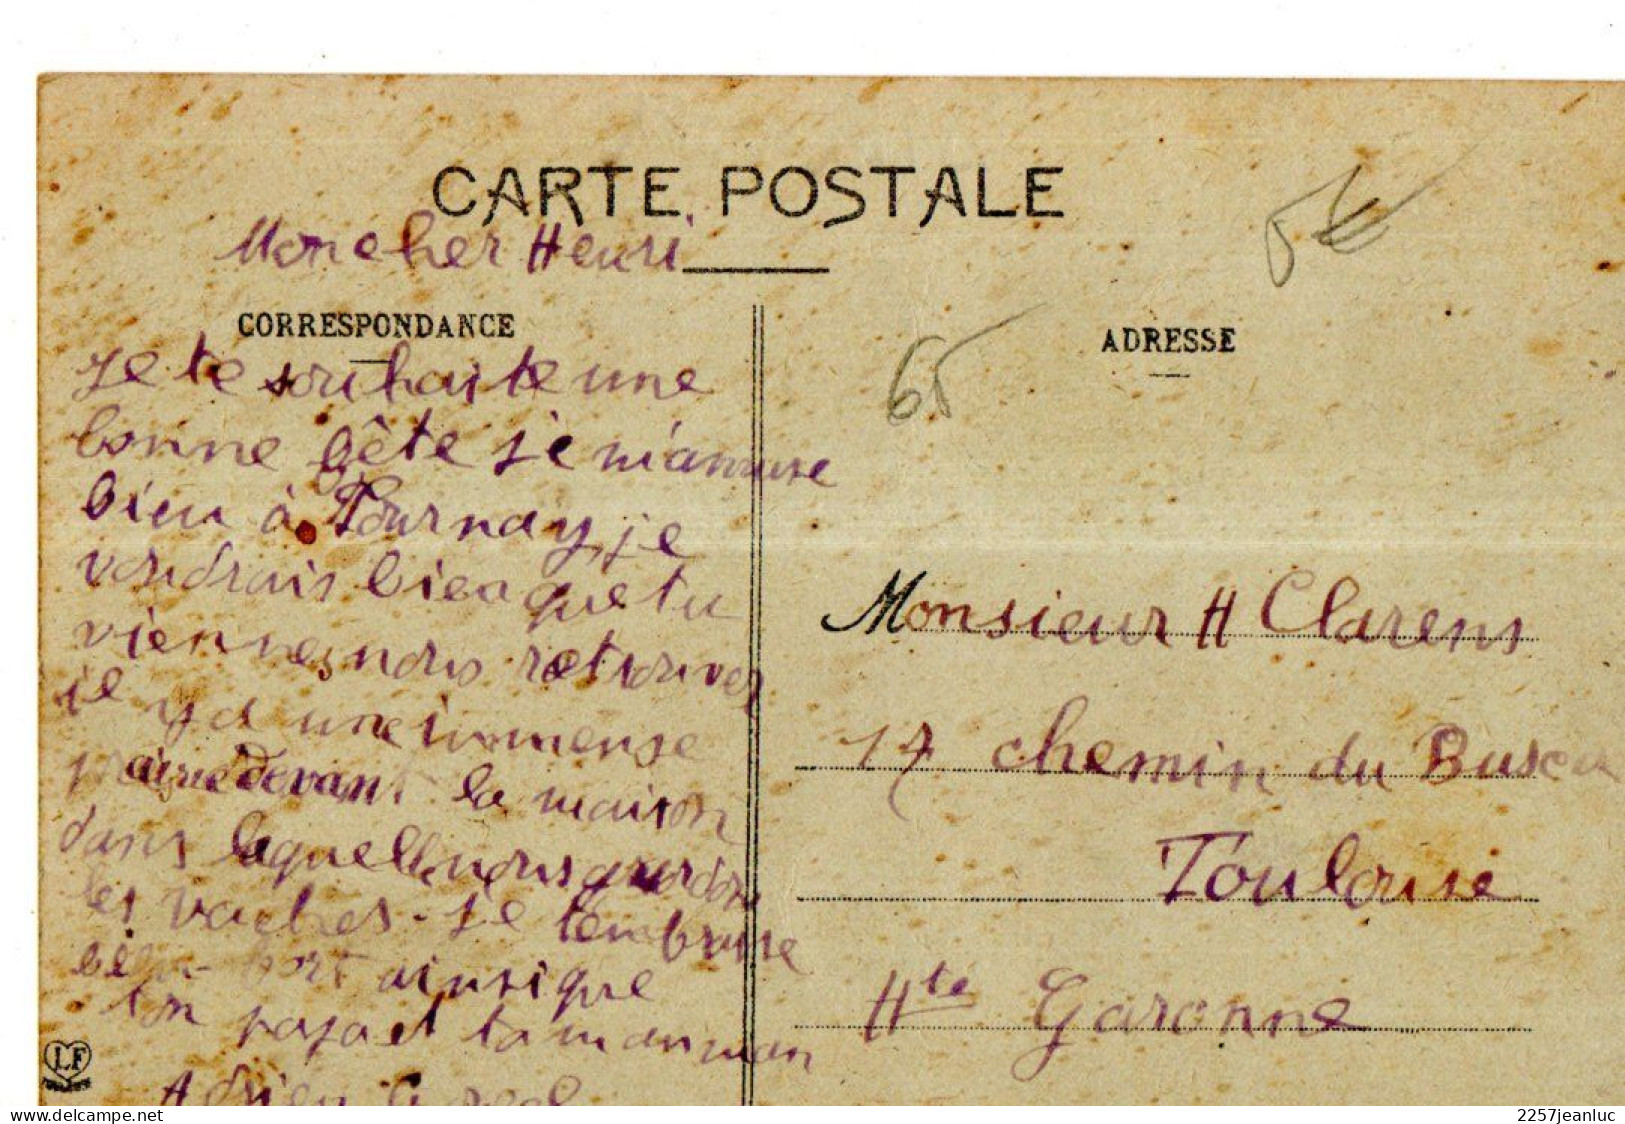 CARTE POSTALE
5€
Mon cher Henri
CORRESPONDANCE
Je te souhaite une
bonne fête je m'amuse
bien à Tournay, je
voudrais bien que tu
viennes nous retrouver
il y a une immense
prairie devant la maison
dans laquelle nous gardons
les vaches - je t'embrasse
bien fort ainsi que
ton papa et ta maman
Adrien
LF
65
ADRESSE
Monsieur H Clarens
17 chemin du Busca
Toulouse
Hte Garonne
www.delcampe.net
2257jeanluc